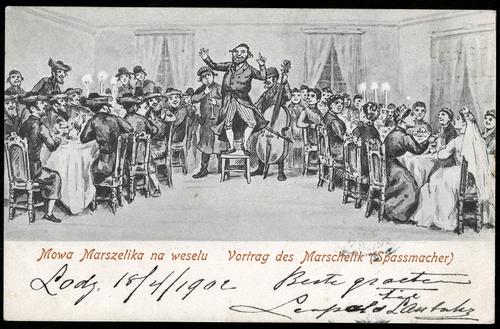 Mowa Marszelika na weselu Vortrag des Marschelik (Spassmacher)
Lodz, 18/4/1902 Beste
Leopold